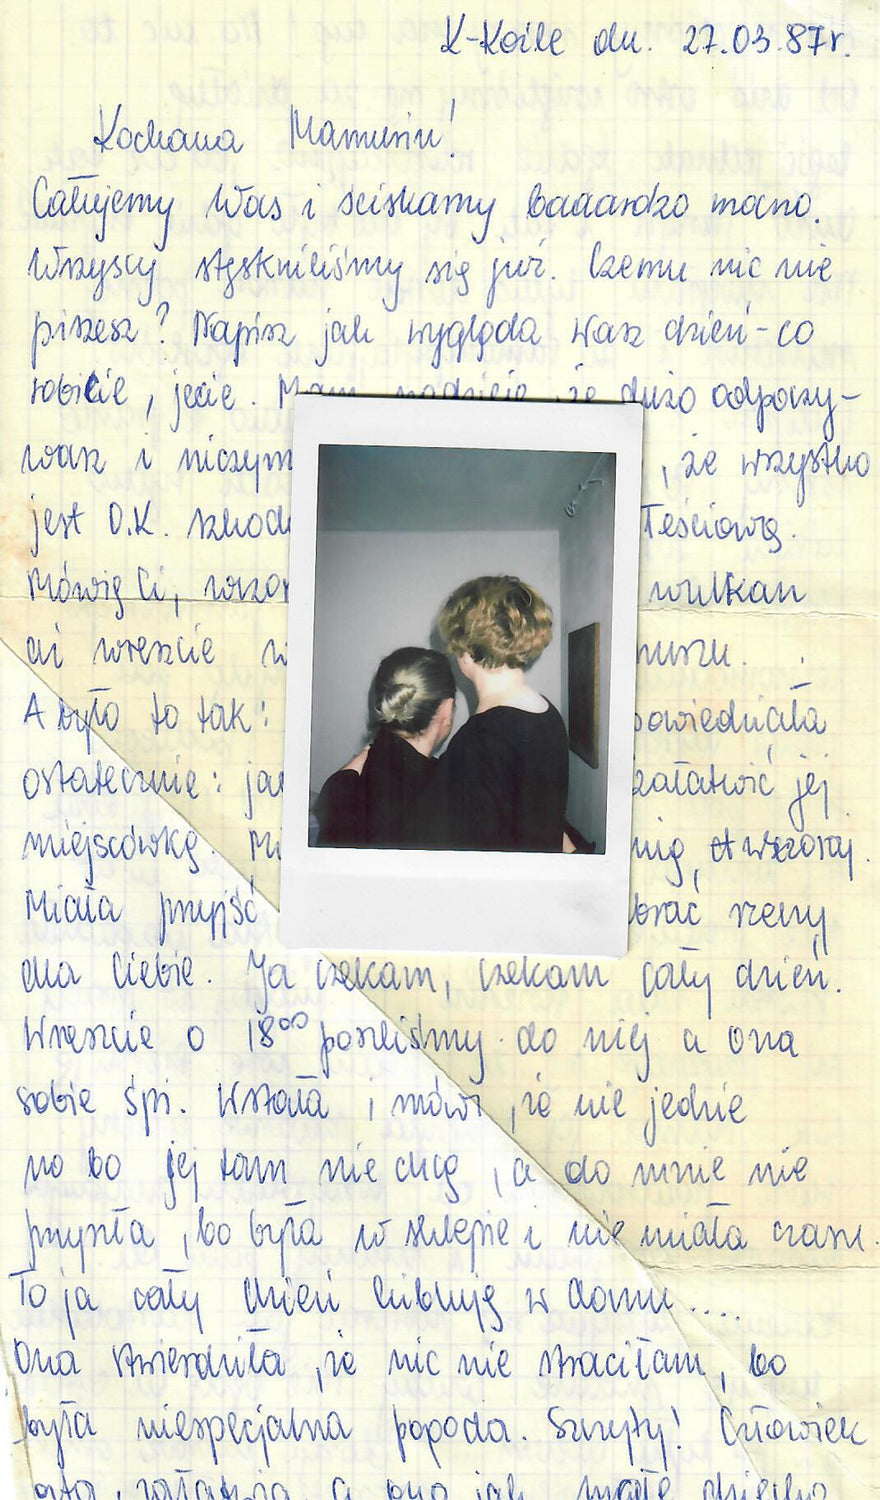 K-Koźle dn. 27.03.87r.
Kochana Mamusiu!
Całujemy Was i ściskamy baaardzo mocno.
Wszyscy stęskniliśmy się już. Czemu nic nie
piszesz? Napisz jak wygląda Wasz dzień - co
robicie, jecie. Mam nadzieję, że dużo odpoczy-
wasz i niczym , że wszystko
jest O.K. Teściową.
Mówię Ci, wulkan
wreszcie
A było to tak:
ostatecznie: załatwić jej
miejscówkę.
Miała przyjść rzeczy
dla Ciebie. Ja czekam, czekam cały dzień.
Wreszcie o 18⁰⁰ poszliśmy do niej a ona
sobie śpi. Wstała i mówi, że nie jedzie
no bo jej tam nie chcą, a do mnie nie
przyszła, bo była w sklepie i nie miała czasu.
To ja cały dzień w domu....
Ona stwierdziła, że nic nie straciłam, bo
była niespecjalna pogoda. Szczyty! Człowiek
lata, załatwia, a ona jak małe dziecko